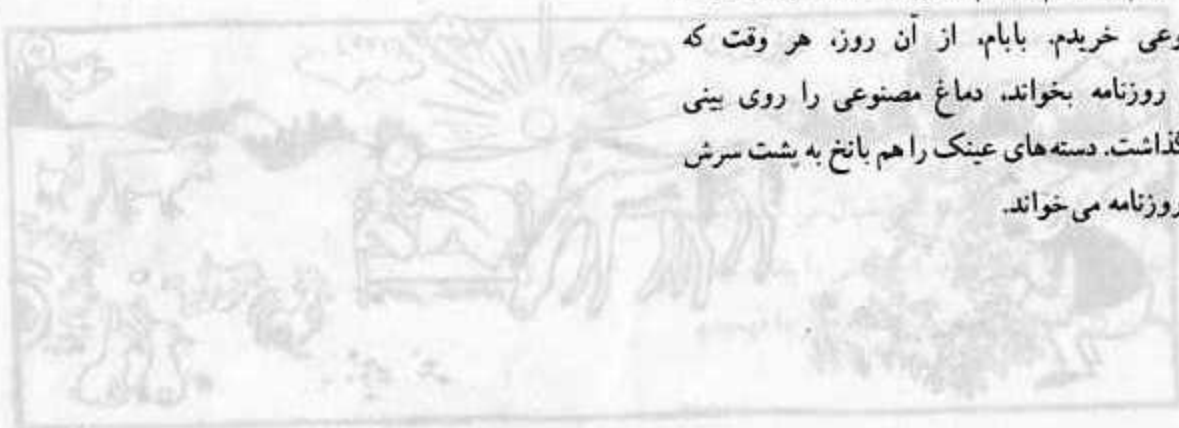 وعی خریدم. بابام، از آن روز، هر وقت که
روزنامه بخواند، دماغ مصنوعی را روی بینی
گذاشت. دسته‌های عینک را هم با نخ به پشت سرش
روزنامه می‌خواند.